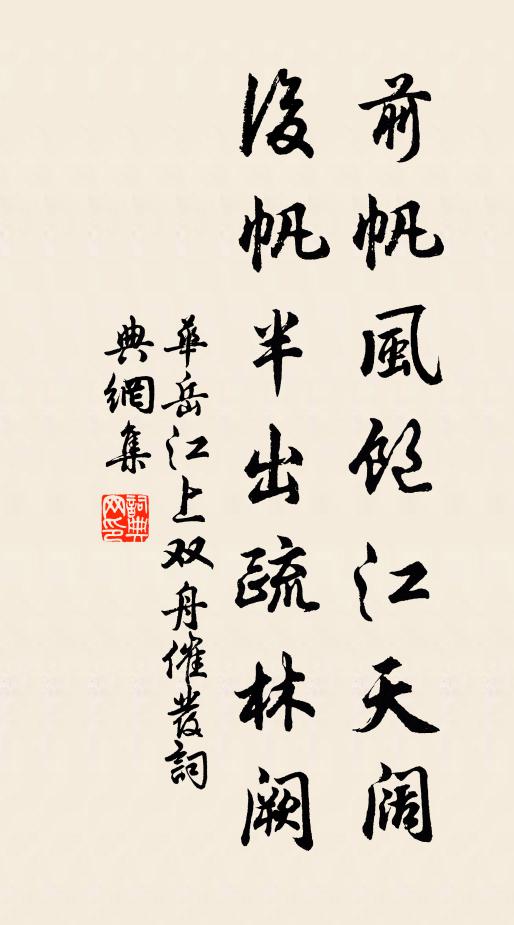 前帆風飽江天阔
後帆半出疏林阙
華岳江上双舟催發詞
典網集
詞典网印